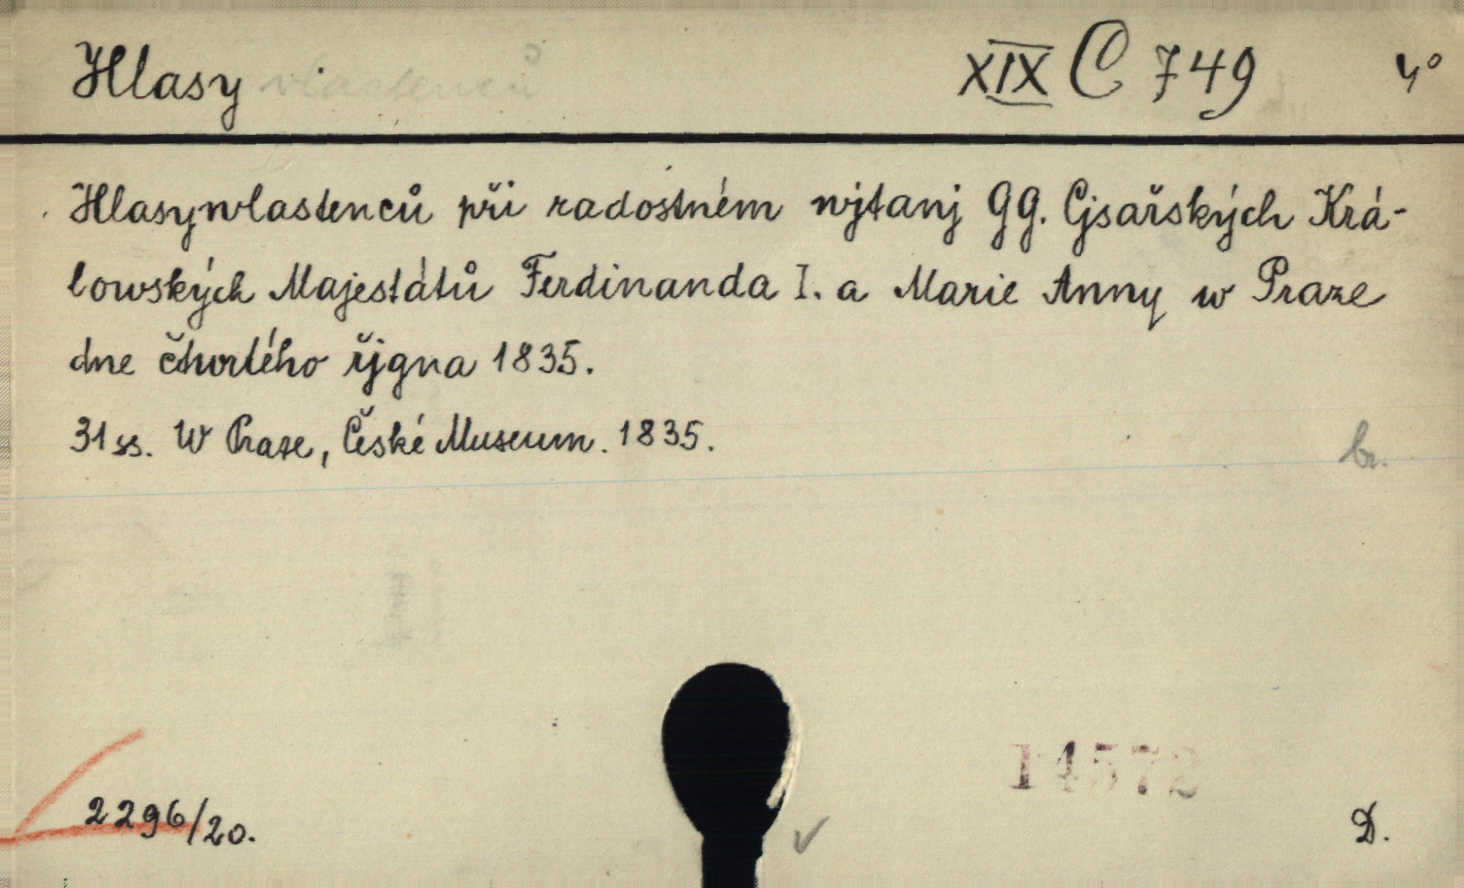 Hlasy vlastenců XIX C 749 4°
Hlasy wlastenců při radostném wjtanj GG. Cjsařských Krá-
lowských Majestátů Ferdinanda I. a Marie Anny w Praze
dne čtwrtého řjgna 1835.
31 ss. W Praze, České Museum. 1835.
br.
14572
2296/20.
D.